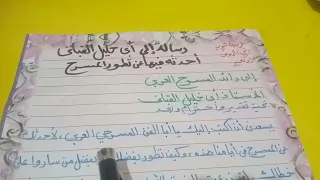 رسالة إلى أبي خليل القباني
أحدثه فيها عن تطور المسرح
إلى رائد المسرح العربي
الأستاذ أبي خليل القباني
تحية تقدير واحترام وبعد
يسعدني أن أكتب إليك يا أبا الفن المسرحي العربي، لأحدثك
عن المسرح في أيامنا هذه، وكيف تطور بفضلك وبفضل من ساروا على
خطاك